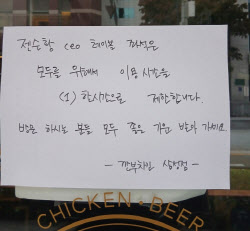 젠슨황 ceo 테이블 좌석은
모두를 위해서 이용 시간을
(1) 한시간으로 제한합니다.
방문 하시는 분들 모두 좋은 기운 받아 가세요.
- 깐부치킨 삼성점 -
CHICKEN & BEER